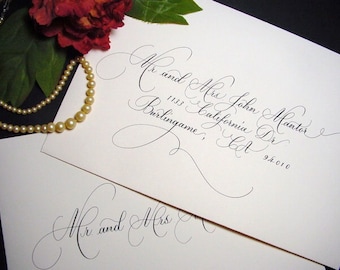 Mr and Mrs John Mantor
2133 California Dr
Burlingame, CA
94010
Mr and Mrs